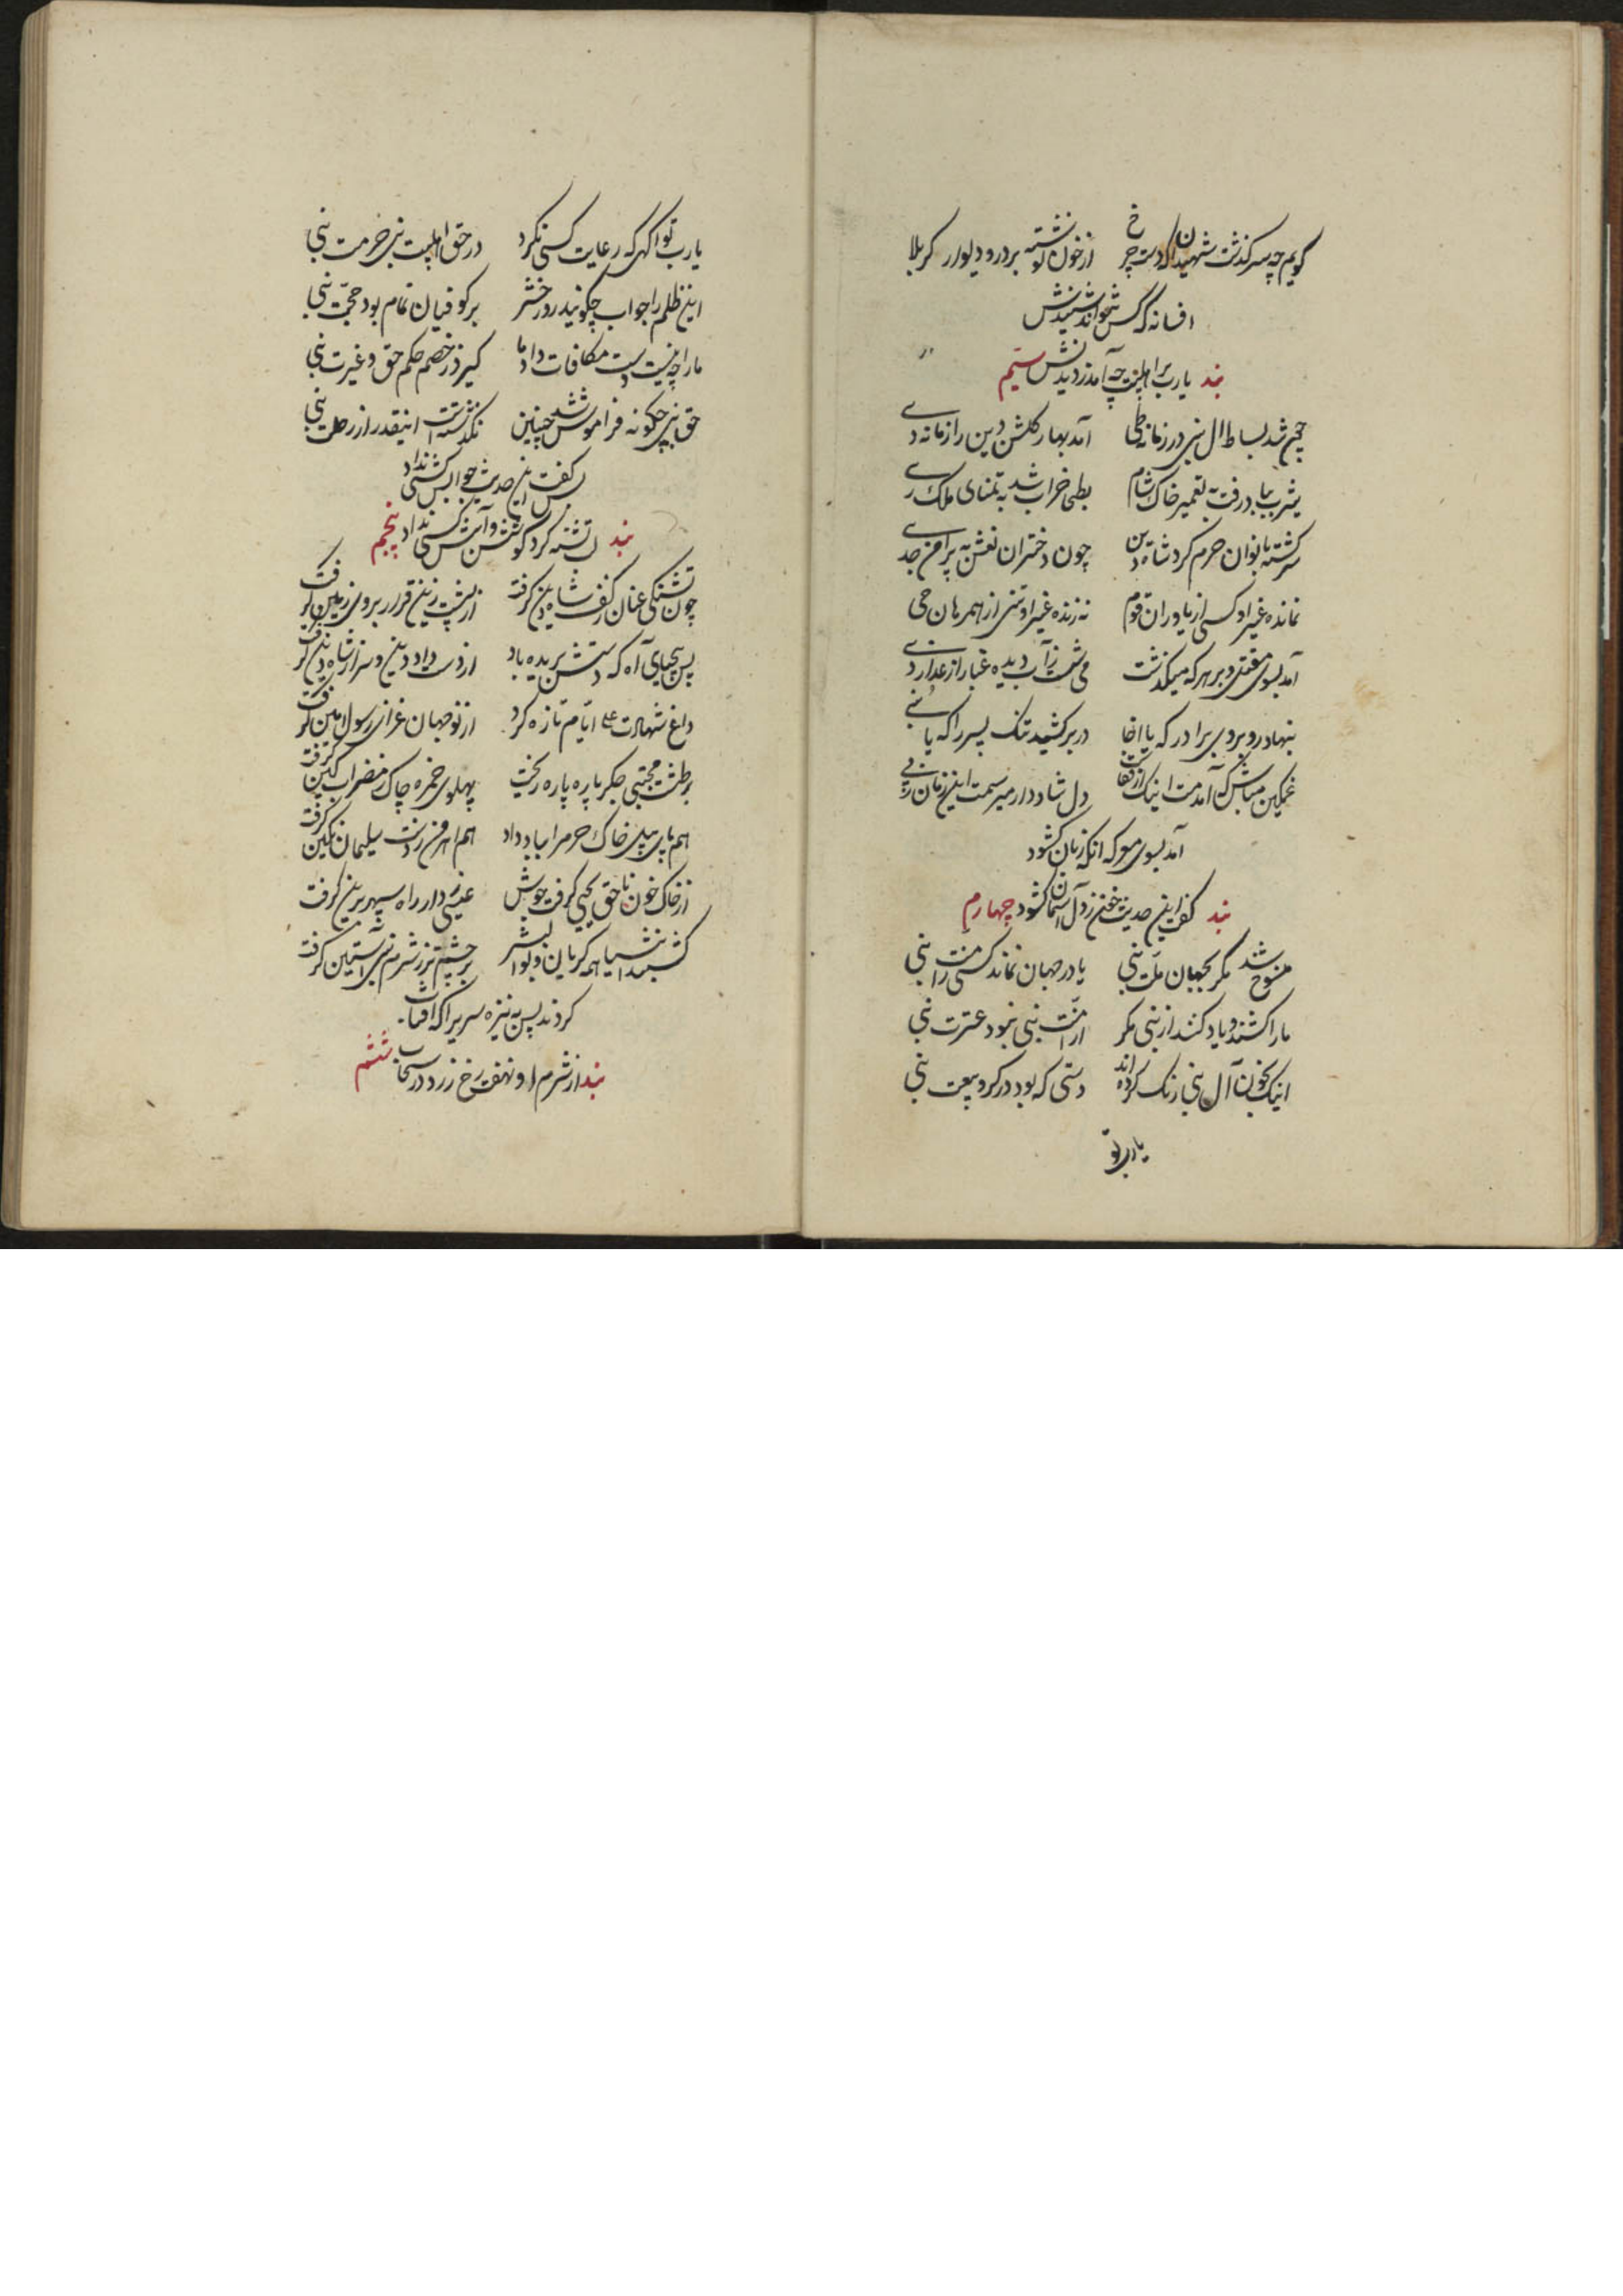 گویم چه سرگذشت شهیدان که دست چرخ از خون نوشته بر در و دیوار کربلا
افسانه که کس نتواند شنیدنش
یارب بر اهلبیت چه آمد ز دیدنش بند سیم
چون شد بساط ال نبی در زمانه طی آمد بهار گلشن دین را زمانه دی
یثرب بباد رفت به تعمیر خاک شام بطحی خراب شد به تمنای ملک ری
سرگشته بانوان حرم گرد شاه دین چون دختران نعش به پیرامن جدی
نمانده غیر او کسی از یاوران قوم نه زنده غیر او تنی از همرهان حی
آمد بسوی مقتل و بر هر که میگذشت می شست ز آب دیده غبار از عذار وی
بنهاد رو بروی برادر که یا اخا در بر کشید تنگ پسر را که یا بنی
غمگین مباش که آمدمت اینک از قفا دل شاد دار میرسمت این زمان ز پی
آمد بسوی معرکه آنگه زبان گشود
گفت این حدیث و خون ز دل آسمان گشود بند چهارم
منسوخ شد مگر بجهان ملت نبی یا در جهان نماند کسی ز امت نبی
ما را کشند و یاد کنند از نبی مگر از امت نبی نبود عترت نبی
اینک بخون آل نبی رنگ کرده اند دستی که بود در گرو بیعت نبی
یارب تو
یارب تو آگهی که رعایت کسی نکرد در حق اهلبیت نبی حرمت نبی
این ظلم را جواب چگویند روز حشر بر کوفیان تمام بود حجت نبی
ما را چه نیست دست مکافات داد ما گیرد ز خصم حکم حق و غیرت نبی
حق نبی چگونه فراموش شد چنین نگذشته است اینقدر از رحلت نبی
پس گفت این حدیث و جوابش کسی نداد
لب تشنه کرد کوشش و آبش کسی نداد بند پنجم
چون تشنگی عنان ز کف شاه دین گرفت از پشت زین قرار بروی زمین گرفت
پس بیحیای آه که دستش بریده باد از دست داد دین و سر از شاه دین گرفت
داغ شهادت علی ایام تازه کرد از نو جهان عزای رسول امین گرفت
بر طشت مجتبی جگر پاره پاره ریخت پهلوی حمزه چاک ز مضراب کین گرفت
هم پای پیل خاک حرم را بباد داد هم اهرمن ز دست سلیمان نگین گرفت
از خاک خون ناحق یحیی گرفت جوش عیسی ز دار راه سپهر برین گرفت
گشتند انبیا همه گریان و بوالبشر بر چشم تر ز شرم نبی آستین گرفت
کردند پس به نیزه سریرا که آفتاب
از شرم او نهفت رخ زرد در سحاب بند ششم